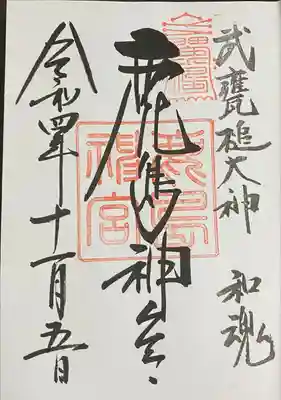 武甕槌大神
和魂
鹿島神宮
鹿島神宮
令和四年十一月五日